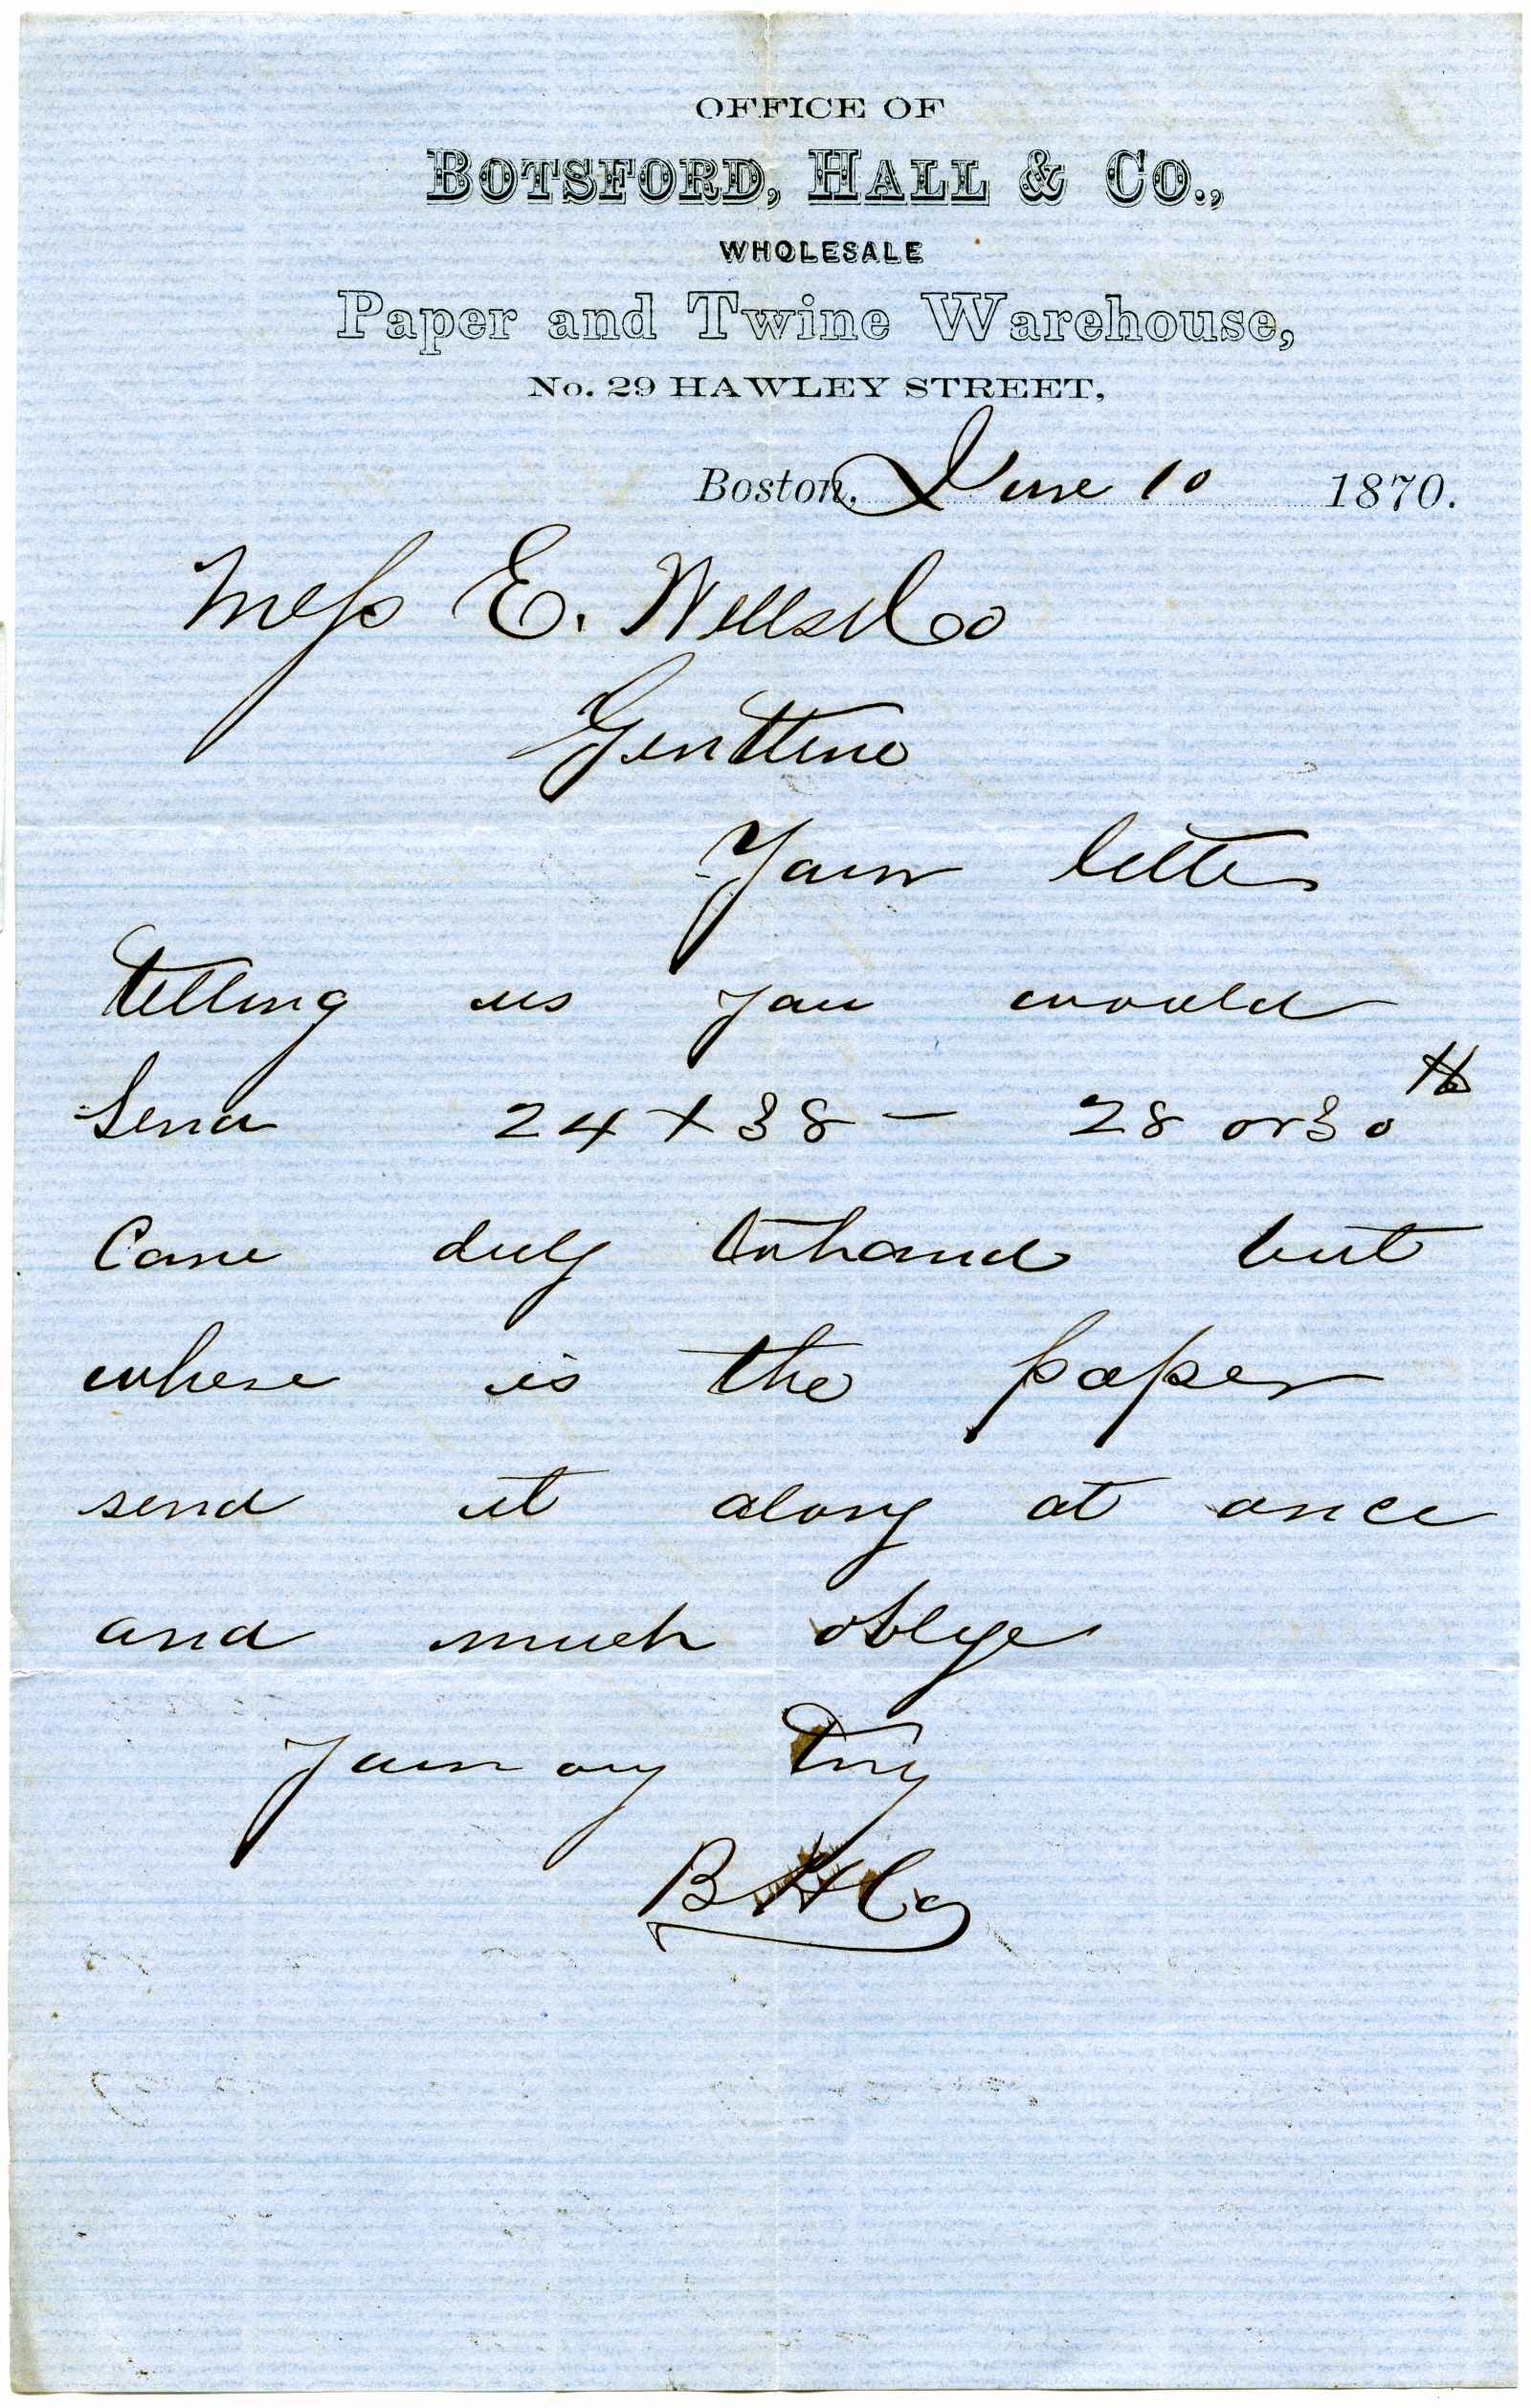 OFFICE OF
BOTSFORD, HALL & CO.,
WHOLESALE
Paper and Twine Warehouse,
No. 29 HAWLEY STREET,
Boston, June 10 1870.
Mess E. Wells & Co
Gentlemen
Your letter
telling us you would
Send 24 x 38 — 28 or 30 lb
Came duly to hand but
where is the paper
send it along at once
and much oblige
Yours Try
B H Co